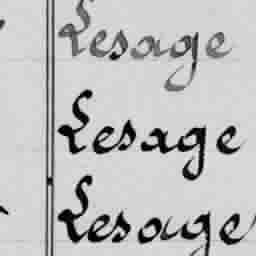 Lesage
Lesage
Lesage